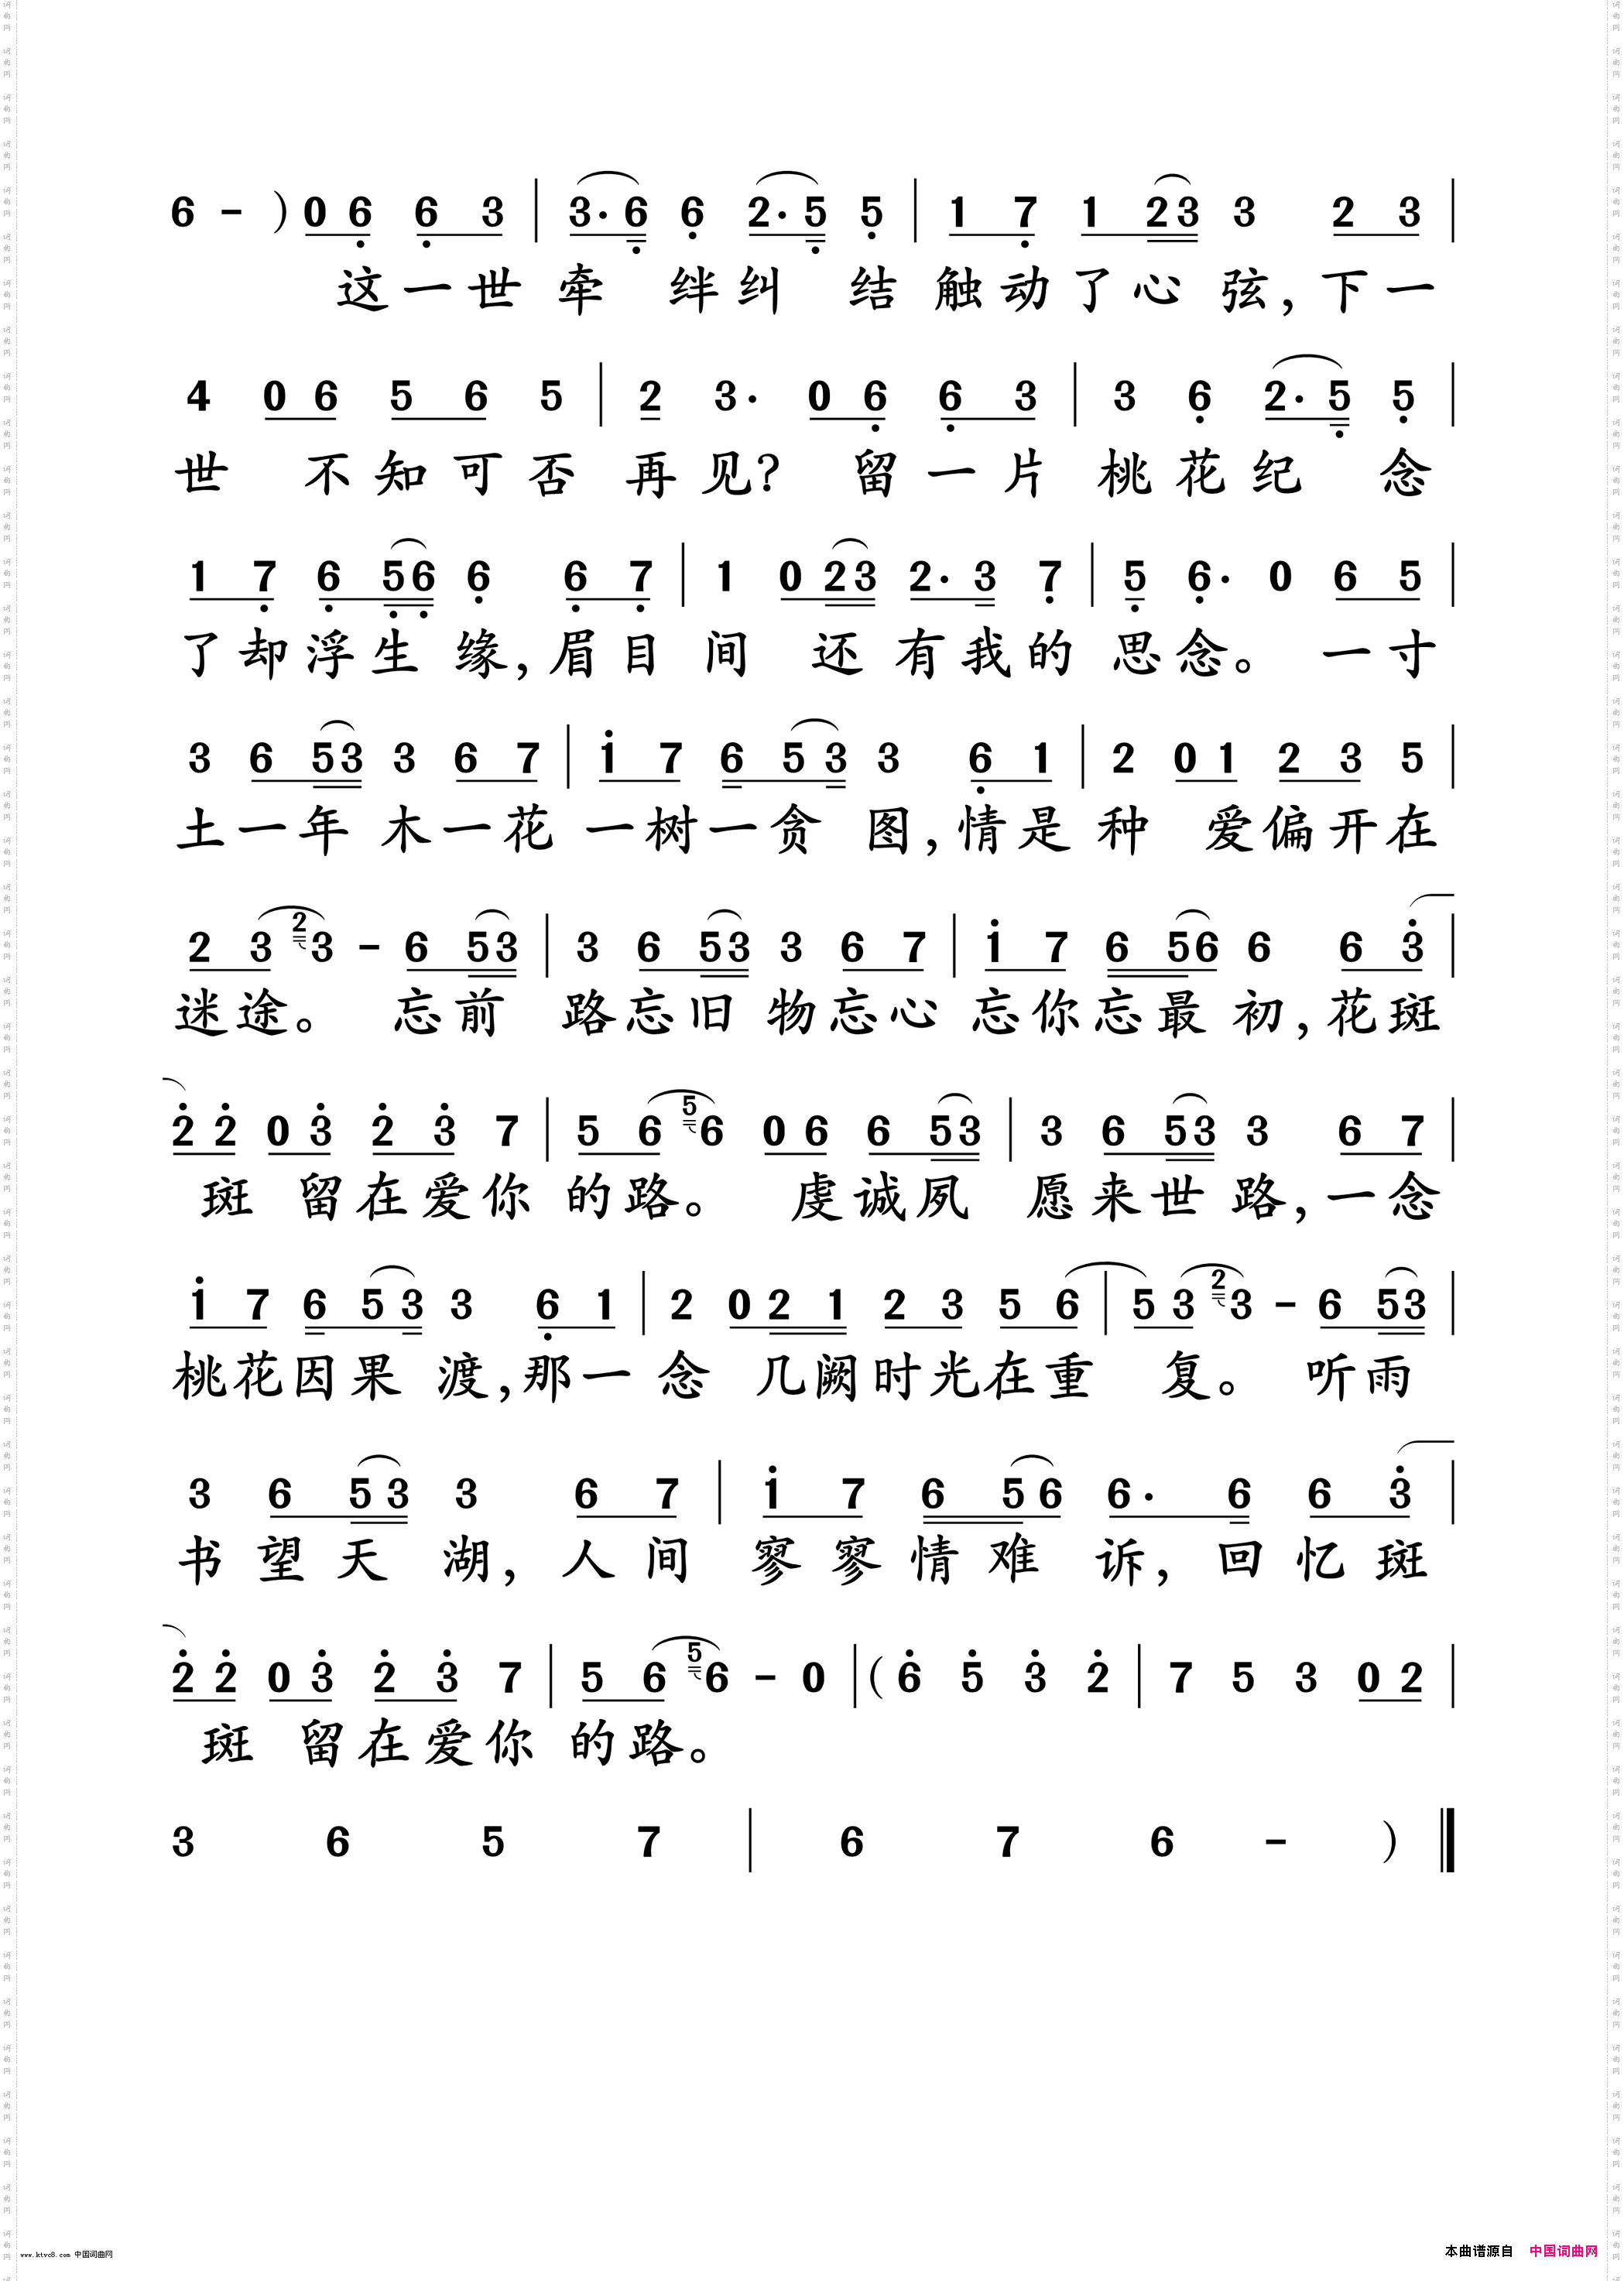 6 - ) 0 6 6 3 | 3· 6 6 2· 5 5 | 1 7 1 2 3 3 2 3 |
这一世牵 绊纠 结 触动了心 弦,下一
4 0 6 5 6 5 | 2 3· 0 6 6 3 | 3 6 2· 5 5 |
世 不知可否 再见? 留一片 桃花纪 念
1 7 6 5 6 6 6 7 | 1 0 2 3 2· 3 7 | 5 6· 0 6 5 |
了却浮生 缘,眉目 间 还有我的 思念。 一寸
3 6 5 3 3 6 7 | i 7 6 5 3 3 6 1 | 2 0 1 2 3 5 |
土一年 木一花 一树一贪 图,情是 种 爱偏开在
2 3 2 3 - 6 5 3 | 3 6 5 3 3 6 7 | i 7 6 5 6 6 6 3 |
迷途。 忘前 路忘旧 物忘心 忘你忘最 初,花斑
2 2 0 3 2 3 7 | 5 6 5 6 0 6 6 5 3 | 3 6 5 3 3 6 7 |
斑 留在爱你 的路。 虔诚夙 愿来世 路,一念
i 7 6 5 3 3 6 1 | 2 0 2 1 2 3 5 6 | 5 3 2 3 - 6 5 3 |
桃花因果 渡,那一 念 几阙时光在重 复。 听雨
3 6 5 3 3 6 7 | i 7 6 5 6 6· 6 6 3 |
书望天 湖,人间 寥寥情难 诉,回忆斑
2 2 0 3 2 3 7 | 5 6 5 6 - 0 | ( 6 5 3 2 | 7 5 3 0 2 |
斑 留在爱你 的路。
3 6 5 7 | 6 7 6 - )
www.ktvc8.com 中国词曲网
本曲谱源自 中国词曲网